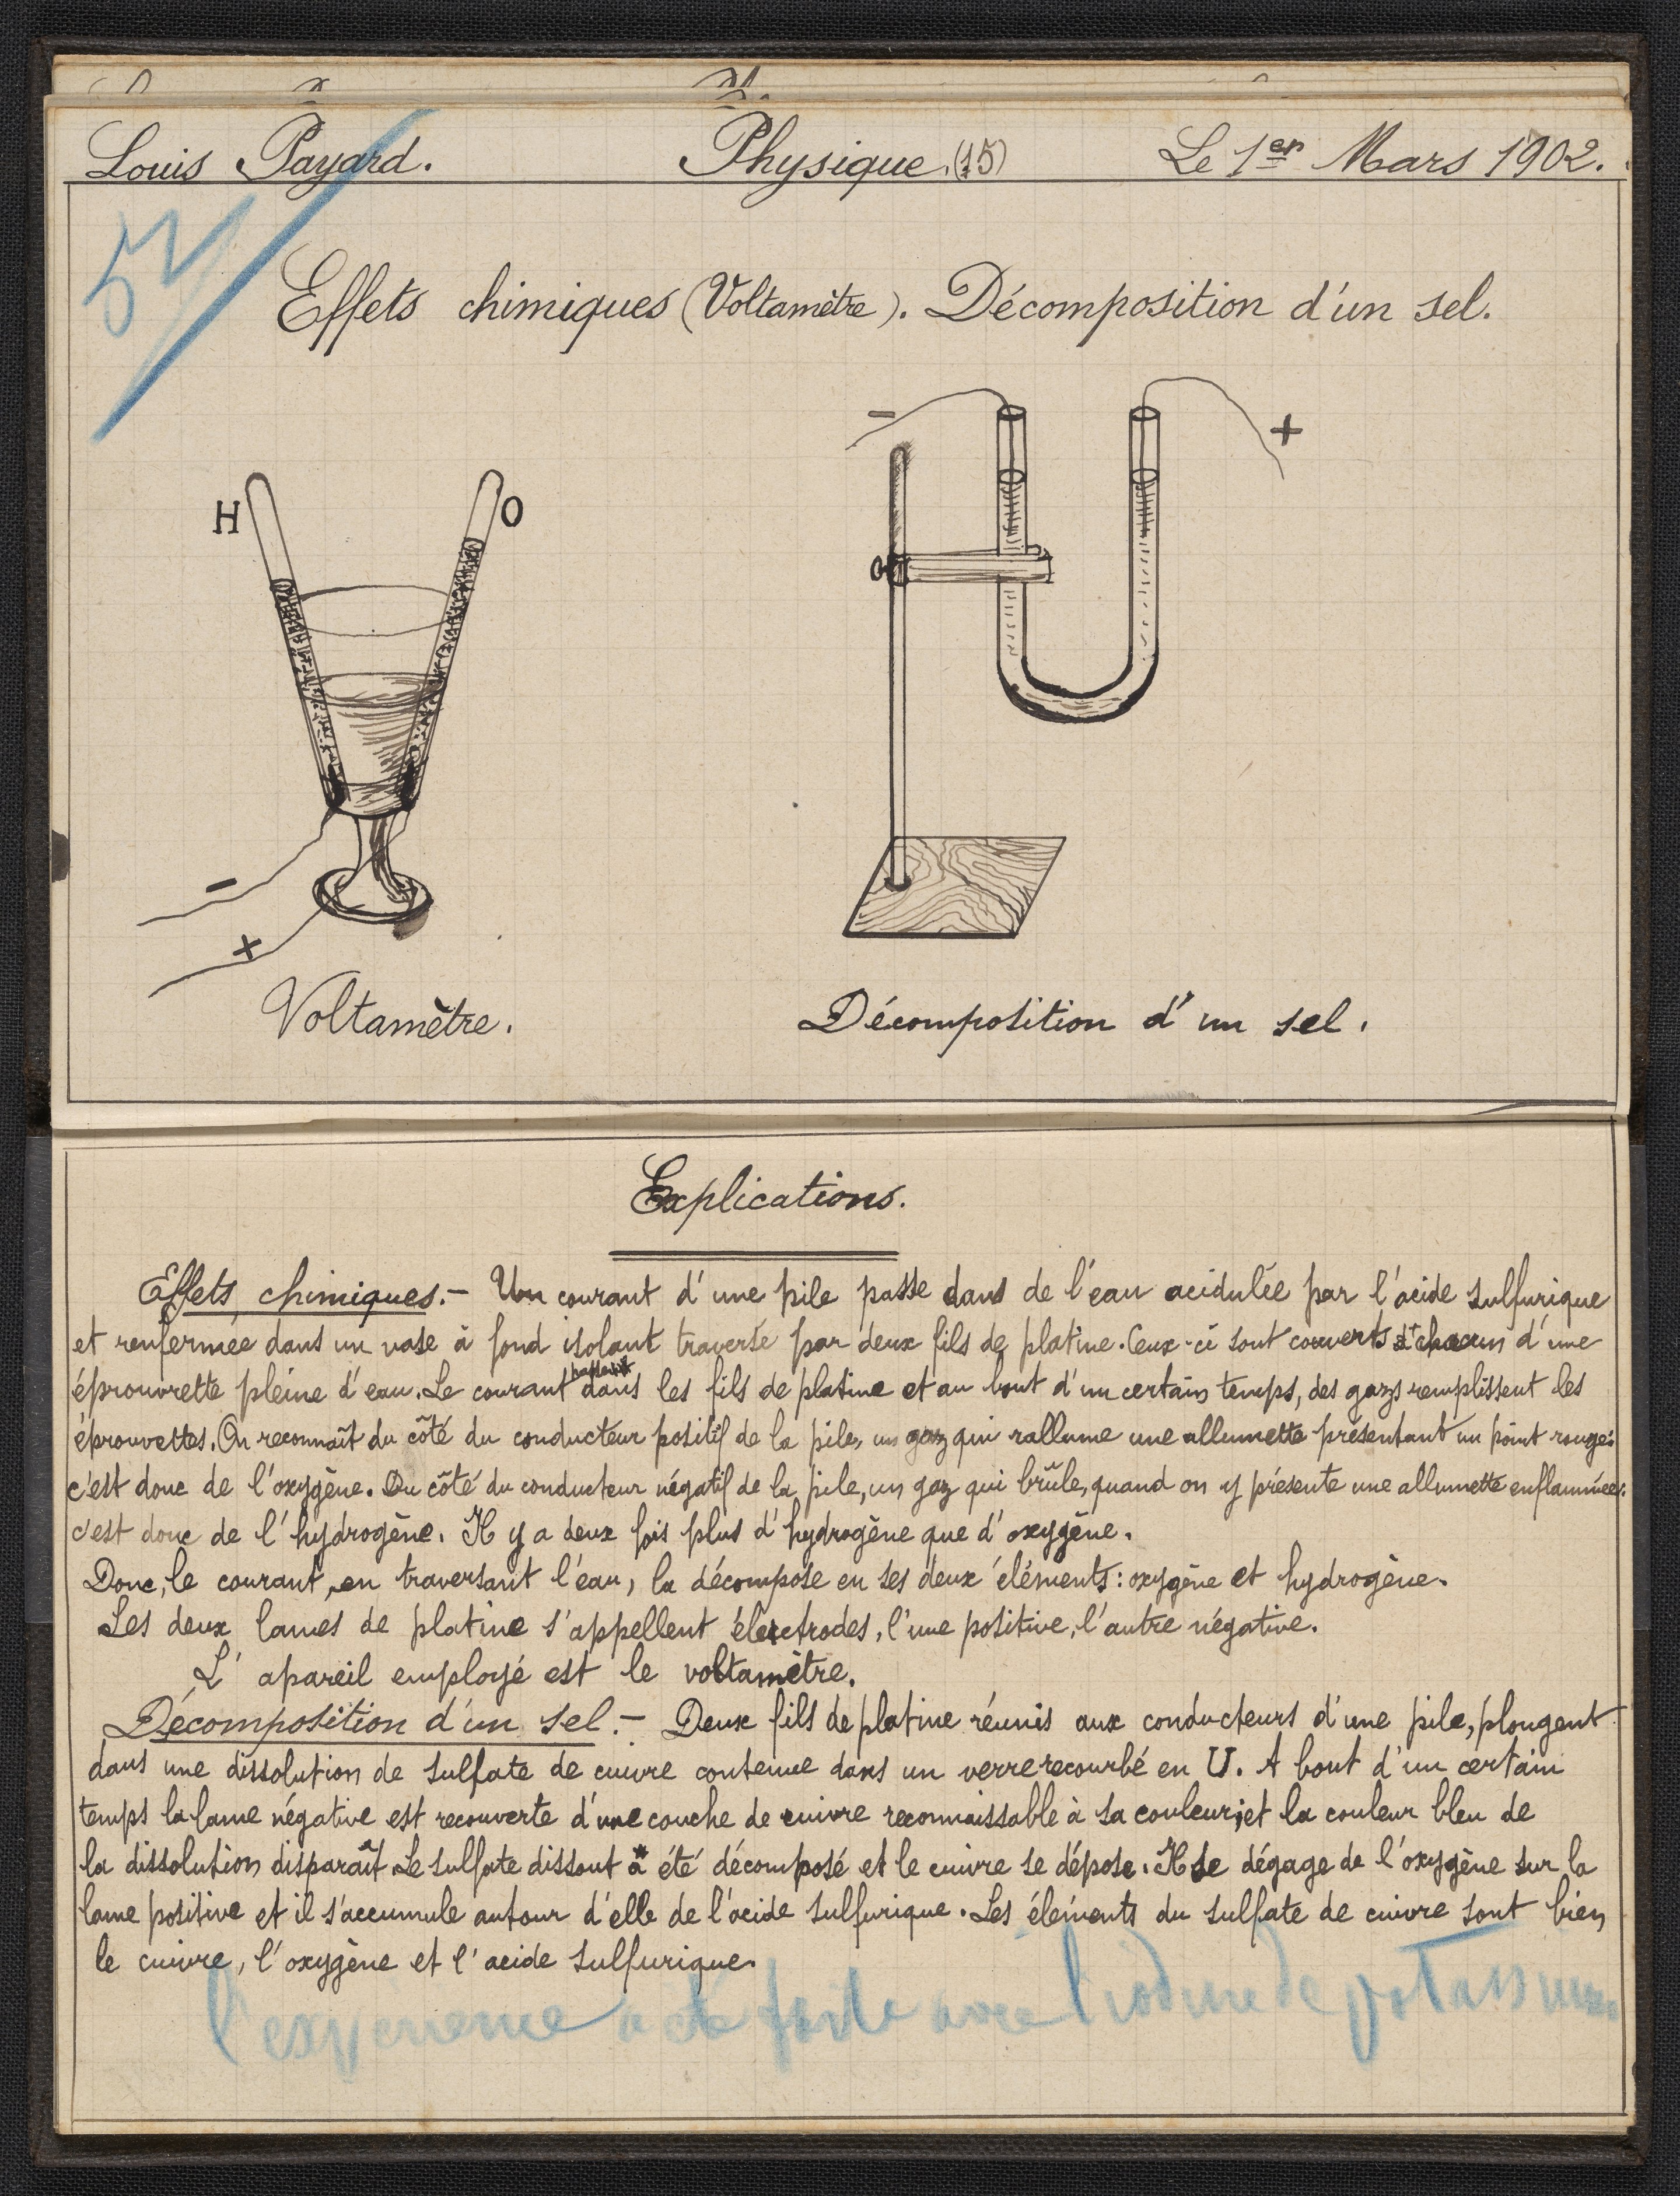 Louis Payard. Physique. (15) Le 1er Mars 1902.
5
Effets chimiques (Voltamètre). Décomposition d'un sel.
- +
H O
-
+
Voltamètre. Décomposition d'un sel.
Explications.
Effets chimiques. - Un courant d'une pile passe dans de l'eau acidulée par l'acide sulfurique
et renfermée dans un vase à fond isolant traversé par deux fils de platine. Ceux-ci sont couverts chacun d'une
éprouvrette pleine d'eau. Le courant dans les fils de platine et au bout d'un certain temps, des gazs remplissent les
éprouvettes. On reconnaît du côté du conducteur positif de la pile, un gaz qui rallume une allumette présentant un point rouge:
c'est donc de l'oxygène. Du côté du conducteur négatif de la pile, un gaz qui brûle, quand on y présente une allumette enflammée:
c'est donc de l'hydrogène. Il y a deux fois plus d'hydrogène que d'oxygène.
Donc, le courant, en traversant l'eau, la décompose en ses deux éléments: oxygène et hydrogène.
Les deux lames de platine s'appellent électrodes, l'une positive, l'autre négative.
L'apareil employé est le voltamètre.
Décomposition d'un sel. - Deux fils de platine réunis aux conducteurs d'une pile, plongent
dans une dissolution de sulfate de cuivre contenue dans un verre recourbé en U. A bout d'un certain
temps la lame négative est recouverte d'une couche de cuivre reconnaissable à sa couleur; et la couleur bleu de
la dissolution disparaît. Le sulfate dissout a été décomposé et le cuivre se dépose. Il se dégage de l'oxygène sur la
lame positive et il s'accumule autour d'elle de l'acide sulfurique. Les éléments du sulfate de cuivre sont bien
le cuivre, l'oxygène et l'acide sulfurique.
l'expérience a été faite avec l'iodure de potassium